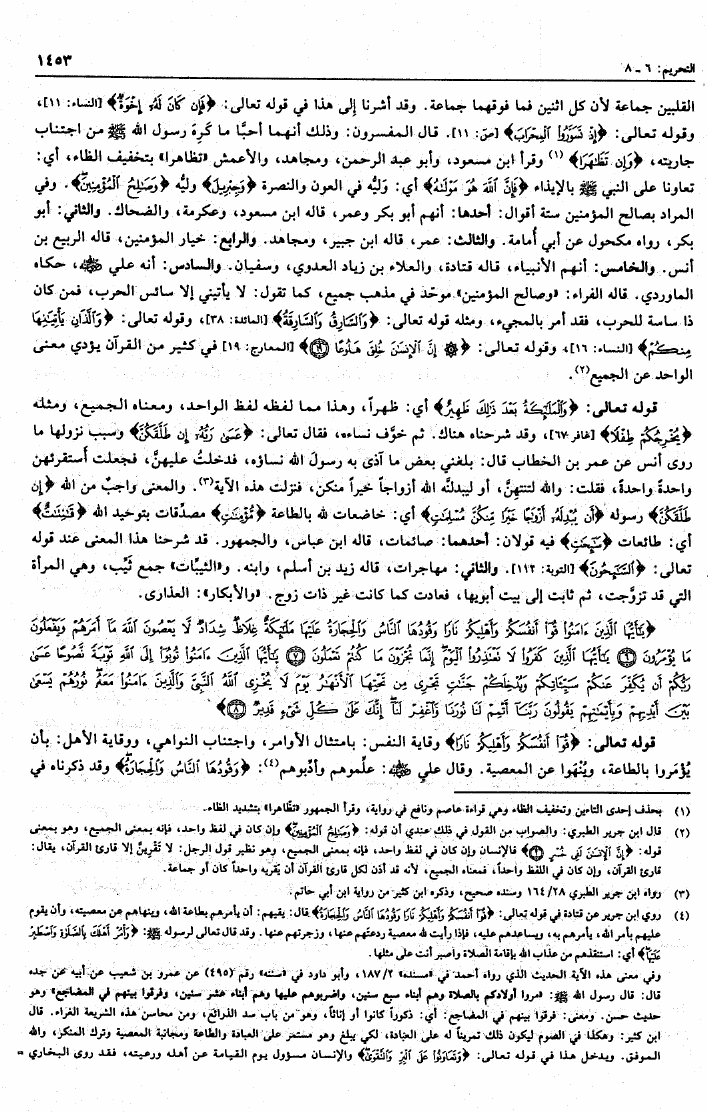 التحريم: ٦ ـ ٨
١٤٥٣
القلبين جماعة لأن كل اثنين فما فوقهما جماعة. وقد أشرنا إلى هذا في قوله تعالى: ﴿فَإِن كَانَ لَهُۥ إِخْوَةٌ﴾ [النساء: ١١]،
وقوله تعالى: ﴿إِذْ تَسَوَّرُوا۟ ٱلْمِحْرَابَ﴾ [ص: ١١]. قال المفسرون: وذلك أنهما أحبَّا ما كَرِهَ رسول الله ﷺ من اجتناب
جاريته، ﴿وَإِن تَظَٰهَرَا﴾ (١) وقرأ ابن مسعود، وأبو عبد الرحمن، ومجاهد، والأعمش «تَظَاهَرا» بتخفيف الظاء، أي:
تعاونا على النبي ﷺ بالإيذاء ﴿فَإِنَّ ٱللَّهَ هُوَ مَوْلَىٰهُ﴾ أي: وليُّه في العون والنصرة ﴿وَجِبْرِيلُ﴾ وليُّه ﴿وَصَٰلِحُ ٱلْمُؤْمِنِينَ﴾. وفي
المراد بصالح المؤمنين ستة أقوال: أحدها: أنهم أبو بكر وعمر، قاله ابن مسعود، وعكرمة، والضحاك. والثاني: أبو
بكر، رواه مكحول عن أبي أُمامة. والثالث: عمر، قاله ابن جبير، ومجاهد. والرابع: خيار المؤمنين، قاله الربيع بن
أنس. والخامس: أنهم الأنبياء، قاله قتادة، والعلاء بن زياد العدوي، وسفيان. والسادس: أنه علي ﷺ، حكاه
الماوردي. قاله الفراء: «وصالح المؤمنين» موحَّد في مذهب جميع، كما تقول: لا يأتيني إلا سائس الحرب، فمن كان
ذا ساسة للحرب، فقد أمر بالمجيء، ومثله قوله تعالى: ﴿وَٱلسَّارِقُ وَٱلسَّارِقَةُ﴾ [المائدة: ٣٨]، وقوله تعالى: ﴿وَٱلَّذَانِ يَأْتِيَٰنِهَا
مِنكُمْ﴾ [النساء: ١٦]، وقوله تعالى: ﴿إِنَّ ٱلْإِنسَٰنَ خُلِقَ هَلُوعًا ۝١٩﴾ [المعارج: ١٩] في كثير من القرآن يؤدي معنى
الواحد عن الجميع(٢).
قوله تعالى: ﴿وَٱلْمَلَٰٓئِكَةُ بَعْدَ ذَٰلِكَ ظَهِيرٌ﴾ أي: ظهراً، وهذا مما لفظه لفظ الواحد، ومعناه الجميع، ومثله
﴿يُخْرِجُكُمْ طِفْلًا﴾ [غافر: ٦٧]، وقد شرحناه هناك. ثم خوَّف نساءه، فقال تعالى: ﴿عَسَىٰ رَبُّهُۥٓ إِن طَلَّقَكُنَّ﴾ وسبب نزولها ما
روى أنس عن عمر بن الخطاب قال: بلغني بعض ما آذى به رسولَ الله نساؤه، فدخلتُ عليهنَّ، فجعلت أستقرئهن
واحدةً واحدةً، فقلت: والله لتنتهنَّ، أو ليبدلنَّه الله أزواجاً خيراً منكن، فنزلت هذه الآية(٣). والمعنى واجبٌ من الله ﴿إِن
طَلَّقَكُنَّ﴾ رسوله ﴿أَن يُبْدِلَهُۥٓ أَزْوَٰجًا خَيْرًا مِّنكُنَّ مُسْلِمَٰتٍ﴾ أي: خاضعات لله بالطاعة ﴿مُّؤْمِنَٰتٍ﴾ مصدِّقات بتوحيد الله ﴿قَٰنِتَٰتٍ﴾
أي: طائعات ﴿سَٰٓئِحَٰتٍ﴾ فيه قولان: أحدهما: صائمات، قاله ابن عباس، والجمهور. قد شرحنا هذا المعنى عند قوله
تعالى: ﴿ٱلسَّٰٓئِحُونَ﴾ [التوبة: ١١٢]. والثاني: مهاجرات، قاله زيد بن أسلم، وابنه. و«الثيِّبات» جمع ثيِّب، وهي المرأة
التي قد تزوَّجت، ثم ثابت إلى بيت أبويها، فعادت كما كانت غير ذات زوج. «والأبكار»: العذارى.
﴿يَٰٓأَيُّهَا ٱلَّذِينَ ءَامَنُوا۟ قُوٓا۟ أَنفُسَكُمْ وَأَهْلِيكُمْ نَارًا وَقُودُهَا ٱلنَّاسُ وَٱلْحِجَارَةُ عَلَيْهَا مَلَٰٓئِكَةٌ غِلَاظٌ شِدَادٌ لَّا يَعْصُونَ ٱللَّهَ مَآ أَمَرَهُمْ وَيَفْعَلُونَ
مَا يُؤْمَرُونَ ۝٦ يَٰٓأَيُّهَا ٱلَّذِينَ كَفَرُوا۟ لَا تَعْتَذِرُوا۟ ٱلْيَوْمَ إِنَّمَا تُجْزَوْنَ مَا كُنتُمْ تَعْمَلُونَ ۝٧ يَٰٓأَيُّهَا ٱلَّذِينَ ءَامَنُوا۟ تُوبُوٓا۟ إِلَى ٱللَّهِ تَوْبَةً نَّصُوحًا عَسَىٰ
رَبُّكُمْ أَن يُكَفِّرَ عَنكُمْ سَيِّـَٔاتِكُمْ وَيُدْخِلَكُمْ جَنَّٰتٍ تَجْرِى مِن تَحْتِهَا ٱلْأَنْهَٰرُ يَوْمَ لَا يُخْزِى ٱللَّهُ ٱلنَّبِىَّ وَٱلَّذِينَ ءَامَنُوا۟ مَعَهُۥ نُورُهُمْ يَسْعَىٰ
بَيْنَ أَيْدِيهِمْ وَبِأَيْمَٰنِهِمْ يَقُولُونَ رَبَّنَآ أَتْمِمْ لَنَا نُورَنَا وَٱغْفِرْ لَنَآ إِنَّكَ عَلَىٰ كُلِّ شَىْءٍ قَدِيرٌ ۝٨﴾
قوله تعالى: ﴿قُوٓا۟ أَنفُسَكُمْ وَأَهْلِيكُمْ نَارًا﴾ وقاية النفس: بامتثال الأوامر، واجتناب النواهي، ووقاية الأهل: بأن
يُؤمَروا بالطاعة، ويُنْهَوا عن المعصية. وقال علي ﷺ: علِّموهم وأدِّبوهم(٤): ﴿وَقُودُهَا ٱلنَّاسُ وَٱلْحِجَارَةُ﴾ وقد ذكرناه في
(١) بحذف إحدى التاءين وتخفيف الظاء وهي قراءة عاصم ونافع في رواية، وقرأ الجمهور «تظّاهرا» بتشديد الظاء.
(٢) قال ابن جرير الطبري: والصواب من القول في ذلك عندي أن قوله: ﴿وَصَٰلِحُ ٱلْمُؤْمِنِينَ﴾ وإن كان في لفظ واحد، فإنه بمعنى الجميع، وهو بمعنى
قوله: ﴿إِنَّ ٱلْإِنسَٰنَ لَفِى خُسْرٍ ۝٢﴾ فالإنسان وإن كان في لفظ واحد، فإنه بمعنى الجميع، وهو نظير قول الرجل: لا تَقْرِينَّ إلا قارئ القرآن، يقال:
قارئ القرآن، وإن كان في اللفظ واحداً، فمعناه الجميع، لأنه قد أذن لكل قارئ القرآن أن يقريه واحداً كان أو جماعة.
(٣) رواه ابن جرير الطبري ١٦٤/٢٨ وسنده صحيح، وذكره ابن كثير من رواية ابن أبي حاتم.
(٤) روي ابن جرير عن قتادة في قوله تعالى: ﴿قُوٓا۟ أَنفُسَكُمْ وَأَهْلِيكُمْ نَارًا وَقُودُهَا ٱلنَّاسُ وَٱلْحِجَارَةُ﴾ قال: يقيهم: أن يأمرهم بطاعة الله، وينهاهم عن معصيته، وأن يقوم
عليهم بأمر الله، يأمرهم به، ويساعدهم عليه، فإذا رأيت لله معصية ردعتهم عنها، وزجرتهم عنها. وقد قال تعالى لرسوله ﷺ: ﴿وَأْمُرْ أَهْلَكَ بِٱلصَّلَوٰةِ وَٱصْطَبِرْ
عَلَيْهَا﴾ أي: استنقذهم من عذاب الله بإقامة الصلاة واصبر أنت على مثلها.
وفي معنى هذه الآية الحديث الذي رواه أحمد في «مسنده» ١٨٧/٢، وأبو داود في «سننه» رقم (٤٩٥) عن عمرو بن شعيب عن أبيه عن جده
قال: قال رسول الله ﷺ: «مروا أولادكم بالصلاة وهم أبناء سبع سنين، واضربوهم عليها وهم أبناء عشر سنين، وفرقوا بينهم في المضاجع» وهو
حديث حسن. ومعنى: فرقوا بينهم في المضاجع: أي: ذكوراً كانوا أو إناثاً، وهو من باب سد الذرائع، ومن محاسن هذه الشريعة الغراء. قال
ابن كثير: وهكذا في الصوم ليكون ذلك تمريناً له على العبادة، لكي يبلغ وهو مستمر على العبادة والطاعة ومجانبة المعصية وترك المنكر، والله
الموفق. ويدخل هذا في قوله تعالى: ﴿وَتَعَاوَنُوا۟ عَلَى ٱلْبِرِّ وَٱلتَّقْوَىٰ﴾ والإنسان مسؤول يوم القيامة عن أهله ورعيته، فقد روى البخاري =